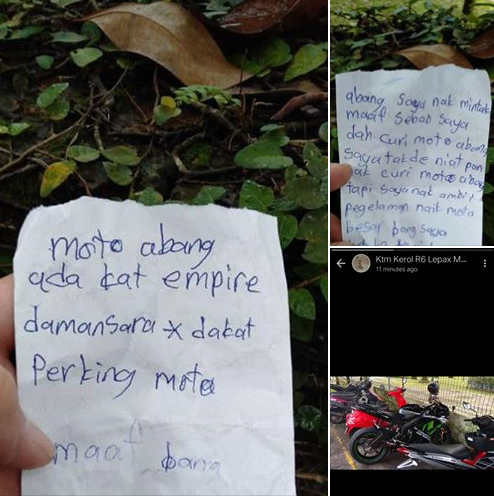 moto abang
ada kat empire
damansara * dakat
Perking mota
maaf bang
abang saya nak mintak
maaf sebab saya
dah curi moto abang
saya tak de niat pon
nak curi moto abang
tapi saya nak ambil
pegelaman naik mota
besar bang saya
Ktm Kerol R6 Lepax M...
11 minutes ago